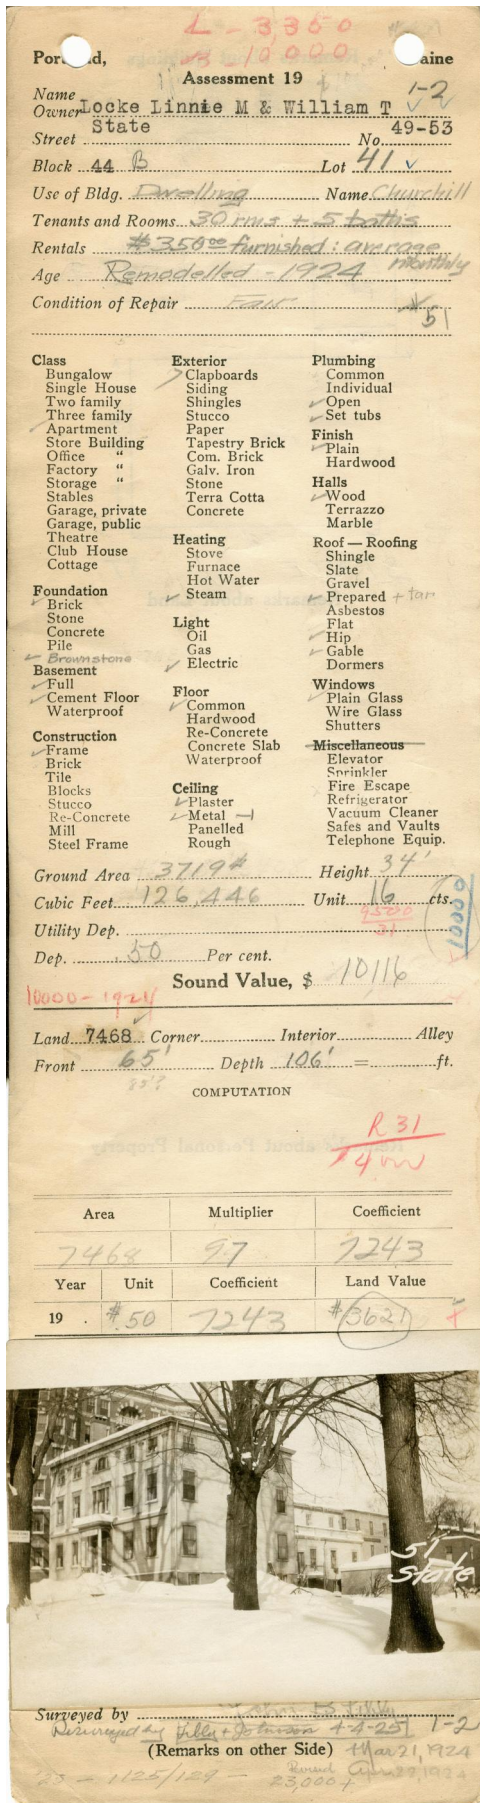 L - 3350
B - 10000
Portland, Maine
Assessment 19
1-2
Name
Owner Locke Linnie M & William T
Street State No. 49-53
Block 44 B Lot 41
Use of Bldg. Dwelling Name Churchill
Tenants and Rooms 30 rms + 5 baths
Rentals $350.00 furnished: average monthly
Age Remodelled - 1924
Condition of Repair Fair
51
Class
Bungalow
Single House
Two family
Three family
Apartment
Store Building
Office "
Factory "
Storage "
Stables
Garage, private
Garage, public
Theatre
Club House
Cottage
Foundation
Brick
Stone
Concrete
Pile
Brownstone
Basement
Full
Cement Floor
Waterproof
Construction
Frame
Brick
Tile
Blocks
Stucco
Re-Concrete
Mill
Steel Frame
Exterior
Clapboards
Siding
Shingles
Stucco
Paper
Tapestry Brick
Com. Brick
Galv. Iron
Stone
Terra Cotta
Concrete
Heating
Stove
Furnace
Hot Water
Steam
Light
Oil
Gas
Electric
Floor
Common
Hardwood
Re-Concrete
Concrete Slab
Waterproof
Ceiling
Plaster
Metal - 1
Panelled
Rough
Plumbing
Common
Individual
Open
Set tubs
Finish
Plain
Hardwood
Halls
Wood
Terrazzo
Marble
Roof — Roofing
Shingle
Slate
Gravel
Prepared + tar
Asbestos
Flat
Hip
Gable
Dormers
Windows
Plain Glass
Wire Glass
Shutters
Miscellaneous
Elevator
Sprinkler
Fire Escape
Refrigerator
Vacuum Cleaner
Safes and Vaults
Telephone Equip.
Ground Area 3719# Height 34'
Cubic Feet 126,446 Unit 16 cts.
9500
31
10000
Utility Dep.
Dep. .50 Per cent.
Sound Value, $ 10116
10000 - 1924
Land 7468 Corner Interior Alley
Front 65' Depth 106' = ft.
85'?
COMPUTATION
R 31
Area Multiplier Coefficient
7468 97 7243
Year Unit Coefficient Land Value
19 . $.50 7243 $3621
51
State
Surveyed by
Resurveyed by Libby + Johnson 4-4-25 1-2
(Remarks on other Side) Mar 21, 1924
Revised Apr. 29, 1924
'25 - 1125/129 - 23,000+